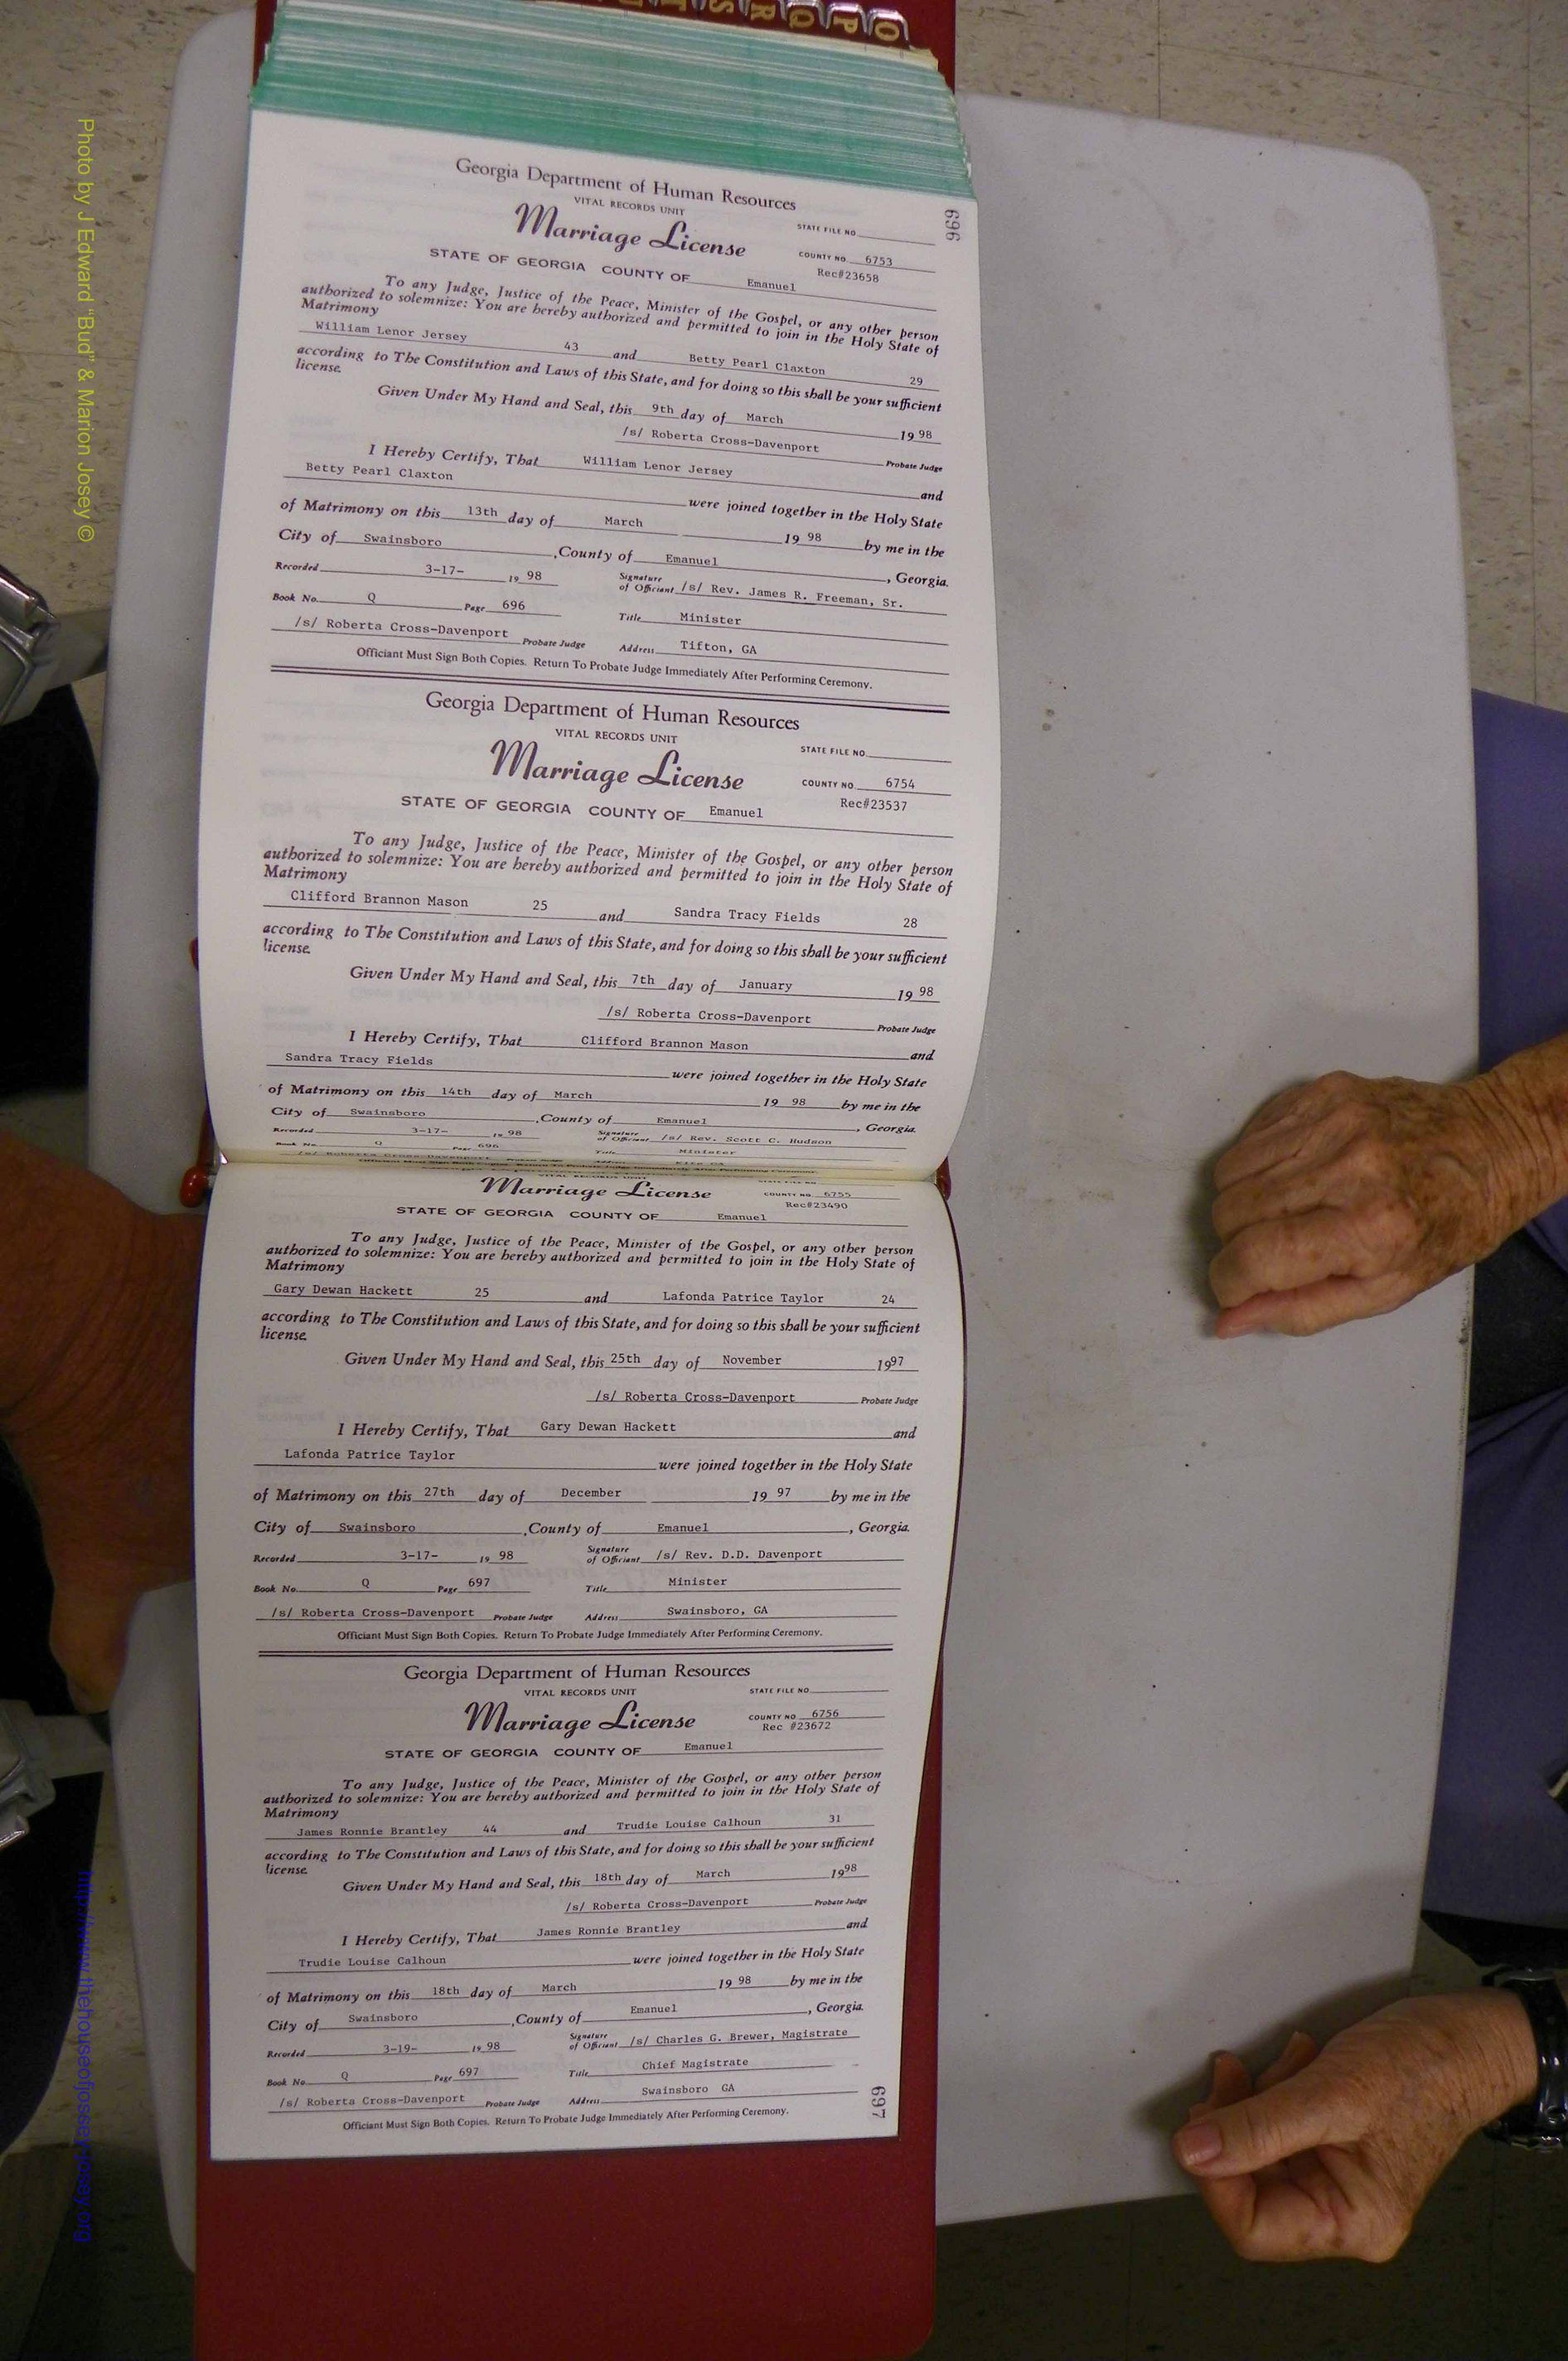 O P Q R S
Photo by J Edward "Bud" & Marion Josey ©
http://www.thehouseofjosseyjosey.org
696
Georgia Department of Human Resources
VITAL RECORDS UNIT
STATE FILE NO.
Marriage License
COUNTY NO. 6753
Rec#23658
STATE OF GEORGIA COUNTY OF Emanuel
To any Judge, Justice of the Peace, Minister of the Gospel, or any other person
authorized to solemnize: You are hereby authorized and permitted to join in the Holy State of
Matrimony
William Lenor Jersey 43 and Betty Pearl Claxton 29
according to The Constitution and Laws of this State, and for doing so this shall be your sufficient
license.
Given Under My Hand and Seal, this 9th day of March 19 98
/s/ Roberta Cross-Davenport Probate Judge
I Hereby Certify, That William Lenor Jersey and
Betty Pearl Claxton were joined together in the Holy State
of Matrimony on this 13th day of March 19 98 by me in the
City of Swainsboro ,County of Emanuel , Georgia.
Recorded 3-17- 19 98 Signature of Officiant /s/ Rev. James R. Freeman, Sr.
Book No. Q Page 696 Title Minister
/s/ Roberta Cross-Davenport Probate Judge Address Tifton, GA
Officiant Must Sign Both Copies. Return To Probate Judge Immediately After Performing Ceremony.
Georgia Department of Human Resources
VITAL RECORDS UNIT
STATE FILE NO.
Marriage License
COUNTY NO. 6754
Rec#23537
STATE OF GEORGIA COUNTY OF Emanuel
To any Judge, Justice of the Peace, Minister of the Gospel, or any other person
authorized to solemnize: You are hereby authorized and permitted to join in the Holy State of
Matrimony
Clifford Brannon Mason 25 and Sandra Tracy Fields 28
according to The Constitution and Laws of this State, and for doing so this shall be your sufficient
license.
Given Under My Hand and Seal, this 7th day of January 19 98
/s/ Roberta Cross-Davenport Probate Judge
I Hereby Certify, That Clifford Brannon Mason and
Sandra Tracy Fields were joined together in the Holy State
of Matrimony on this 14th day of March 19 98 by me in the
City of Swainsboro ,County of Emanuel , Georgia.
Recorded 3-17- 19 98 Signature of Officiant /s/ Rev. Scott C. Hudson
Book No. Q Page 696 Title Minister
/s/ Roberta Cross-Davenport Probate Judge Address
Officiant Must Sign Both Copies. Return To Probate Judge Immediately After Performing Ceremony.
VITAL RECORDS UNIT
STATE FILE NO.
Marriage License
COUNTY NO. 6755
Rec#23490
STATE OF GEORGIA COUNTY OF Emanuel
To any Judge, Justice of the Peace, Minister of the Gospel, or any other person
authorized to solemnize: You are hereby authorized and permitted to join in the Holy State of
Matrimony
Gary Dewan Hackett 25 and Lafonda Patrice Taylor 24
according to The Constitution and Laws of this State, and for doing so this shall be your sufficient
license.
Given Under My Hand and Seal, this 25th day of November 1997
/s/ Roberta Cross-Davenport Probate Judge
I Hereby Certify, That Gary Dewan Hackett and
Lafonda Patrice Taylor were joined together in the Holy State
of Matrimony on this 27th day of December 19 97 by me in the
City of Swainsboro ,County of Emanuel , Georgia.
Recorded 3-17- 19 98 Signature of Officiant /s/ Rev. D.D. Davenport
Book No. Q Page 697 Title Minister
/s/ Roberta Cross-Davenport Probate Judge Address Swainsboro, GA
Officiant Must Sign Both Copies. Return To Probate Judge Immediately After Performing Ceremony.
Georgia Department of Human Resources
VITAL RECORDS UNIT
STATE FILE NO.
Marriage License
COUNTY NO. 6756
Rec #23672
STATE OF GEORGIA COUNTY OF Emanuel
To any Judge, Justice of the Peace, Minister of the Gospel, or any other person
authorized to solemnize: You are hereby authorized and permitted to join in the Holy State of
Matrimony
James Ronnie Brantley 44 and Trudie Louise Calhoun 31
according to The Constitution and Laws of this State, and for doing so this shall be your sufficient
license.
Given Under My Hand and Seal, this 18th day of March 1998
/s/ Roberta Cross-Davenport Probate Judge
I Hereby Certify, That James Ronnie Brantley and
Trudie Louise Calhoun were joined together in the Holy State
of Matrimony on this 18th day of March 19 98 by me in the
City of Swainsboro ,County of Emanuel , Georgia.
Recorded 3-19- 19 98 Signature of Officiant /s/ Charles G. Brewer, Magistrate
Book No. Q Page 697 Title Chief Magistrate
/s/ Roberta Cross-Davenport Probate Judge Address Swainsboro GA
Officiant Must Sign Both Copies. Return To Probate Judge Immediately After Performing Ceremony.
697